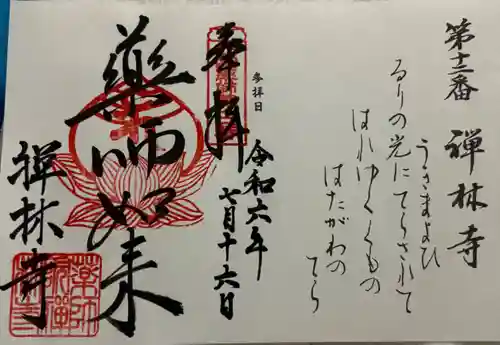 第十二番 禅林寺
うきまよひ
るりの光にてらされて
はれゆくくもの
はたがわの
てら
参拝日
令和六年
七月十六日
奉拝
薬師如来
禅林寺